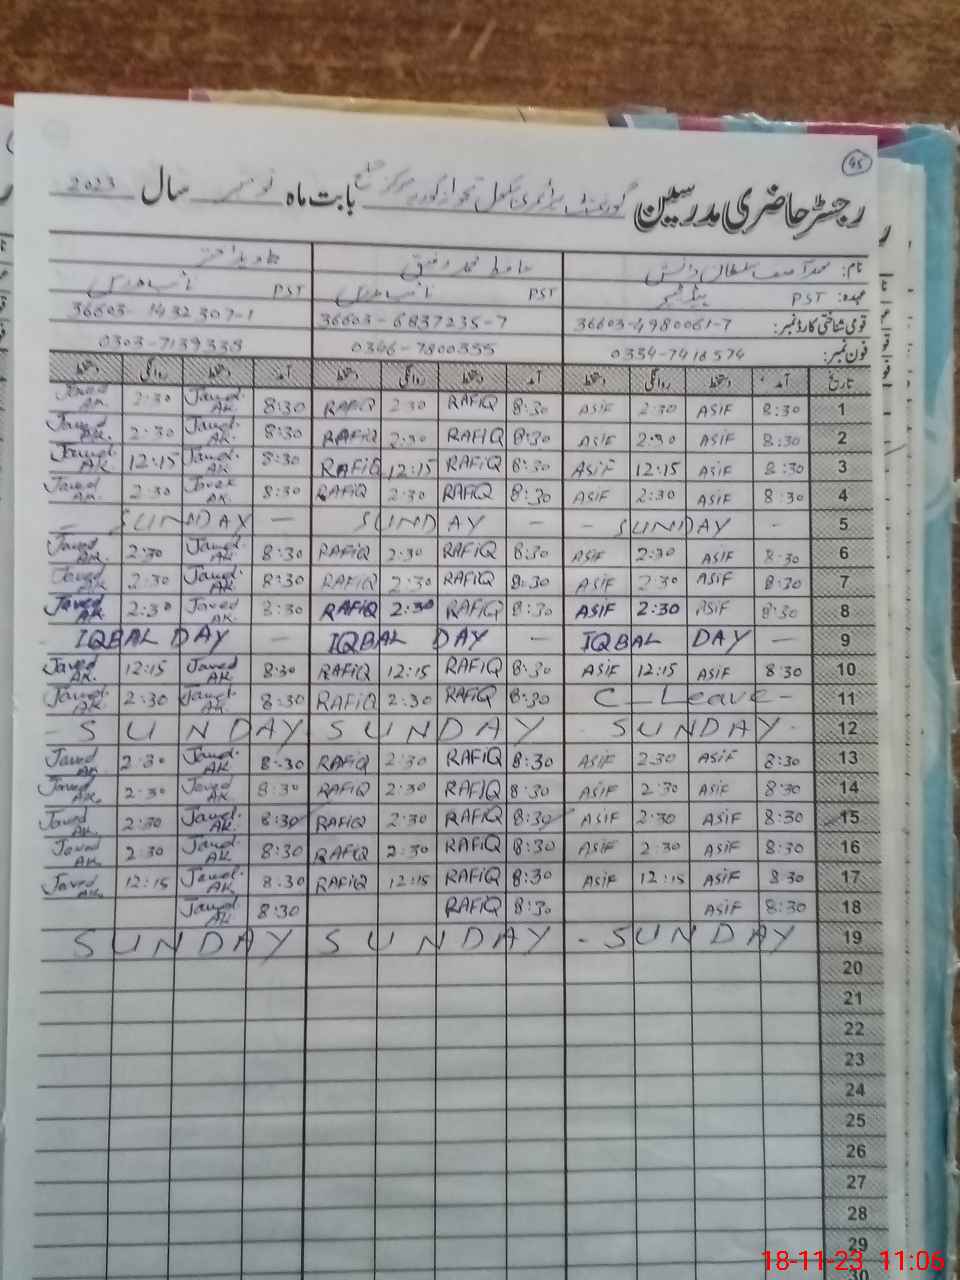 45
رجسٹر حاضری مدرسین گورنمنٹ پرائمری سکول مرکز ضلع بابت ماہ نومبر سال 2023
نام: محمد آصف سلطان دانش حافظ محمد رفیق جاوید اختر
عہدہ: PST ہیڈ ٹیچر PST نائب مدرس PST نائب مدرس
قومی شناختی کارڈ نمبر: 36603-4980061-7 36603-6837235-7 36603-1432307-1
فون نمبر: 0334-7418574 0346-7800355 0303-7139338
تاریخ آمد دستخط روانگی دستخط آمد دستخط روانگی دستخط آمد دستخط روانگی دستخط
1 8:30 ASIF 2:30 ASIF 8:30 RAFIQ 2:30 RAFIQ 8:30 Javed AK. 2:30 Javed AK.
2 8:30 ASIF 2:30 ASIF 8:30 RAFIQ 2:30 RAFIQ 8:30 Javed AK. 2:30 Javed AK.
3 8:30 ASIF 12:15 ASIF 8:30 RAFIQ 12:15 RAFIQ 8:30 Javed AK. 12:15 Javed AK.
4 8:30 ASIF 2:30 ASIF 8:30 RAFIQ 2:30 RAFIQ 8:30 Javed AK. 2:30 Javed AK.
5 - SUNDAY - - SUNDAY - - SUNDAY -
6 8:30 ASIF 2:30 ASIF 8:30 RAFIQ 2:30 RAFIQ 8:30 Javed AK. 2:30 Javed AK.
7 8:30 ASIF 2:30 ASIF 8:30 RAFIQ 2:30 RAFIQ 8:30 Javed AK. 2:30 Javed AK.
8 8:30 ASIF 2:30 ASIF 8:30 RAFIQ 2:30 RAFIQ 8:30 Javed AK. 2:30 Javed AK.
9 IQBAL DAY - IQBAL DAY - - IQBAL DAY -
10 8:30 ASIF 12:15 ASIF 8:30 RAFIQ 12:15 RAFIQ 8:30 Javed AK. 12:15 Javed AK.
11 C-Leave - 8:30 RAFIQ 2:30 RAFIQ 8:30 Javed AK. 2:30 Javed AK.
12 - SUNDAY - SUNDAY - SUNDAY
13 8:30 ASIF 2:30 ASIF 8:30 RAFIQ 2:30 RAFIQ 8:30 Javed AK. 2:30 Javed AK.
14 8:30 ASIF 2:30 ASIF 8:30 RAFIQ 2:30 RAFIQ 8:30 Javed AK. 2:30 Javed AK.
15 8:30 ASIF 2:30 ASIF 8:30 RAFIQ 2:30 RAFIQ 8:30 Javed AK. 2:30 Javed AK.
16 8:30 ASIF 2:30 ASIF 8:30 RAFIQ 2:30 RAFIQ 8:30 Javed AK. 2:30 Javed AK.
17 8:30 ASIF 12:15 ASIF 8:30 RAFIQ 12:15 RAFIQ 8:30 Javed AK. 12:15 Javed AK.
18 8:30 ASIF 8:30 RAFIQ 8:30 Javed AK.
19 - SUNDAY SUNDAY SUNDAY
20
21
22
23
24
25
26
27
28
29
30
18-11-23 11:06